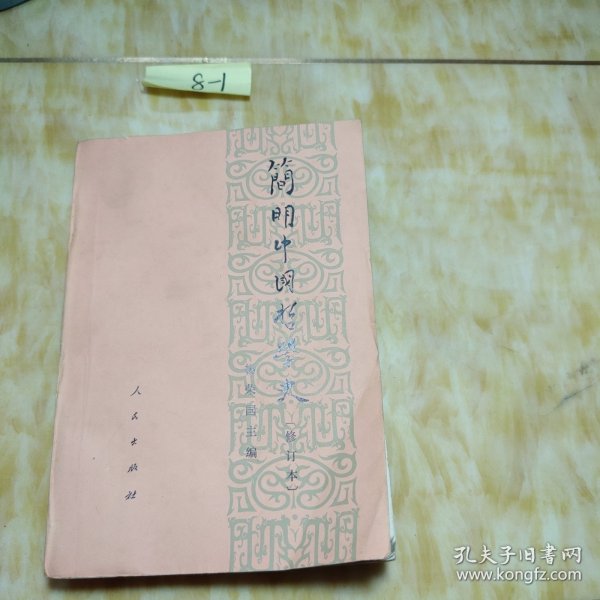 8-1
簡明中国哲学史
〔修订本〕
杨荣国主编
人民出版社
孔夫子旧书网
www.kongfz.com